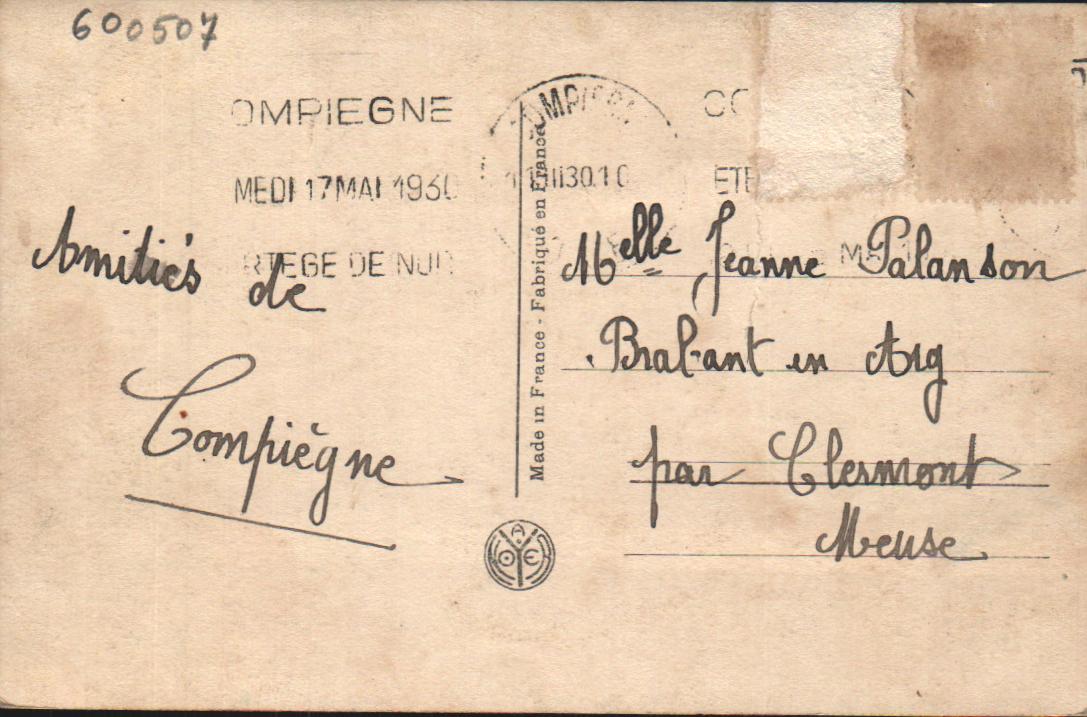 600507
OMPIEGNE
MEDI 17 MAI 1930
RTEGE DE NUI
OMPIEGN
CO
ETE
Amitiés
de
Compiègne
Made in France - Fabriqué en France
A
O E
Melle Jeanne Palanson
Brabant en Arg
par Clermont
Meuse